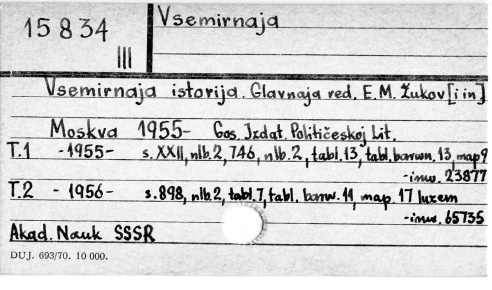 15834
III
Vsemirnaja
Vsemirnaja istorija. Glavnaja red. E.M. Žukov [i in]
Moskva 1955- Gos. Izdat. Političeskoj Lit.
T.1 -1955- s. XXII, nlb. 2, 746, nlb. 2, tabl. 13, tabl. barwn. 13, map 9
-inw. 23877
T.2 - 1956- s. 898, nlb. 2, tabl. 7, tabl. barw. 11, map. 17 luzem
-inw. 65735
Akad. Nauk SSSR
DUJ. 693/70. 10 000.